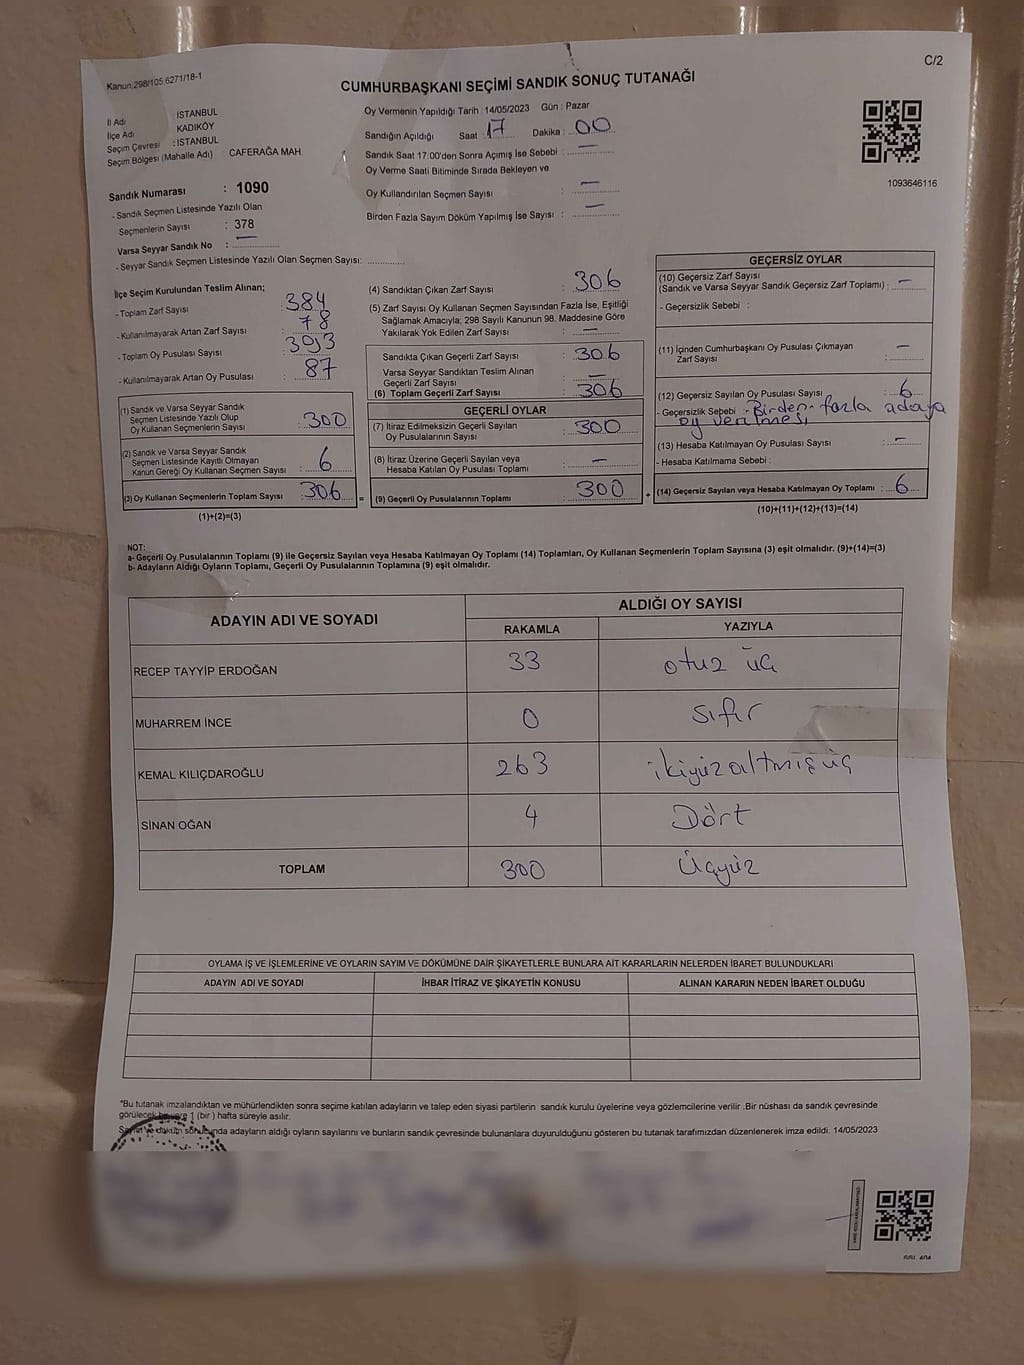 Kanun:298/105 6271/18-1
C/2
CUMHURBAŞKANI SEÇİMİ SANDIK SONUÇ TUTANAĞI
İl Adı : İSTANBUL
İlçe Adı : KADIKÖY
Seçim Çevresi : İSTANBUL
Seçim Bölgesi (Mahalle Adı) : CAFERAĞA MAH.
Sandık Numarası : 1090
- Sandık Seçmen Listesinde Yazılı Olan
Seçmenlerin Sayısı : 378
Varsa Seyyar Sandık No : —
- Seyyar Sandık Seçmen Listesinde Yazılı Olan Seçmen Sayısı:
Oy Vermenin Yapıldığı Tarih : 14/05/2023 Gün : Pazar
Sandığın Açıldığı Saat : 17 Dakika : 00
Sandık Saat 17:00'den Sonra Açımış İse Sebebi : —
Oy Verme Saati Bitiminde Sırada Bekleyen ve
Oy Kullandırılan Seçmen Sayısı : —
Birden Fazla Sayım Döküm Yapılmış İse Sayısı : —
1093646116
İlçe Seçim Kurulundan Teslim Alınan;
- Toplam Zarf Sayısı : 384
- Kullanılmayarak Artan Zarf Sayısı : 78
- Toplam Oy Pusulası Sayısı : 393
- Kullanılmayarak Artan Oy Pusulası : 87
(1) Sandık ve Varsa Seyyar Sandık
Seçmen Listesinde Yazılı Olup
Oy Kullanan Seçmenlerin Sayısı : 300
(2) Sandık ve Varsa Seyyar Sandık
Seçmen Listesinde Kayıtlı Olmayan
Kanun Gereği Oy Kullanan Seçmen Sayısı : 6
(3) Oy Kullanan Seçmenlerin Toplam Sayısı : 306 =
(1)+(2)=(3)
(4) Sandıktan Çıkan Zarf Sayısı : 306
(5) Zarf Sayısı Oy Kullanan Seçmen Sayısından Fazla İse, Eşitliği
Sağlamak Amacıyla; 298 Sayılı Kanunun 98. Maddesine Göre
Yakılarak Yok Edilen Zarf Sayısı : —
Sandıkta Çıkan Geçerli Zarf Sayısı : 306
Varsa Seyyar Sandıktan Teslim Alınan
Geçerli Zarf Sayısı : —
(6) Toplam Geçerli Zarf Sayısı : 306
GEÇERLİ OYLAR
(7) İtiraz Edilmeksizin Geçerli Sayılan
Oy Pusulalarının Sayısı : 300
(8) İtiraz Üzerine Geçerli Sayılan veya
Hesaba Katılan Oy Pusulası Toplamı : —
(9) Geçerli Oy Pusulalarının Toplamı : 300 +
GEÇERSİZ OYLAR
(10) Geçersiz Zarf Sayısı
(Sandık ve Varsa Seyyar Sandık Geçersiz Zarf Toplamı) : —
- Geçersizlik Sebebi :
(11) İçinden Cumhurbaşkanı Oy Pusulası Çıkmayan
Zarf Sayısı : —
(12) Geçersiz Sayılan Oy Pusulası Sayısı : 6
- Geçersizlik Sebebi : Birden fazla adaya
oy verilmesi
(13) Hesaba Katılmayan Oy Pusulası Sayısı : —
- Hesaba Katılmama Sebebi :
(14) Geçersiz Sayılan veya Hesaba Katılmayan Oy Toplamı : 6
(10)+(11)+(12)+(13)=(14)
NOT:
a- Geçerli Oy Pusulalarının Toplamı (9) ile Geçersiz Sayılan veya Hesaba Katılmayan Oy Toplamı (14) Toplamları, Oy Kullanan Seçmenlerin Toplam Sayısına (3) eşit olmalıdır. (9)+(14)=(3)
b- Adayların Aldığı Oyların Toplamı, Geçerli Oy Pusulalarının Toplamına (9) eşit olmalıdır.
ADAYIN ADI VE SOYADI ALDIĞI OY SAYISI
RAKAMLA YAZIYLA
RECEP TAYYİP ERDOĞAN 33 otuz üç
MUHARREM İNCE 0 sıfır
KEMAL KILIÇDAROĞLU 263 ikiyüzaltmışüç
SİNAN OĞAN 4 Dört
TOPLAM 300 Üçyüz
OYLAMA İŞ VE İŞLEMLERİNE VE OYLARIN SAYIM VE DÖKÜMÜNE DAİR ŞİKAYETLERLE BUNLARA AİT KARARLARIN NELERDEN İBARET BULUNDUKLARI
ADAYIN ADI VE SOYADI İHBAR İTİRAZ VE ŞİKAYETİN KONUSU ALINAN KARARIN NEDEN İBARET OLDUĞU
"Bu tutanak imzalandıktan ve mühürlendikten sonra seçime katılan adayların ve talep eden siyasi partilerin sandık kurulu üyelerine veya gözlemcilerine verilir .Bir nüshası da sandık çevresinde
görülecek bir yere 1 (bir ) hafta süreyle asılır.
Sayım ve döküm sonucunda adayların aldığı oyların sayılarını ve bunların sandık çevresinde bulunanlara duyurulduğunu gösteren bu tutanak tarafımızdan düzenlenerek imza edildi. 14/05/2023